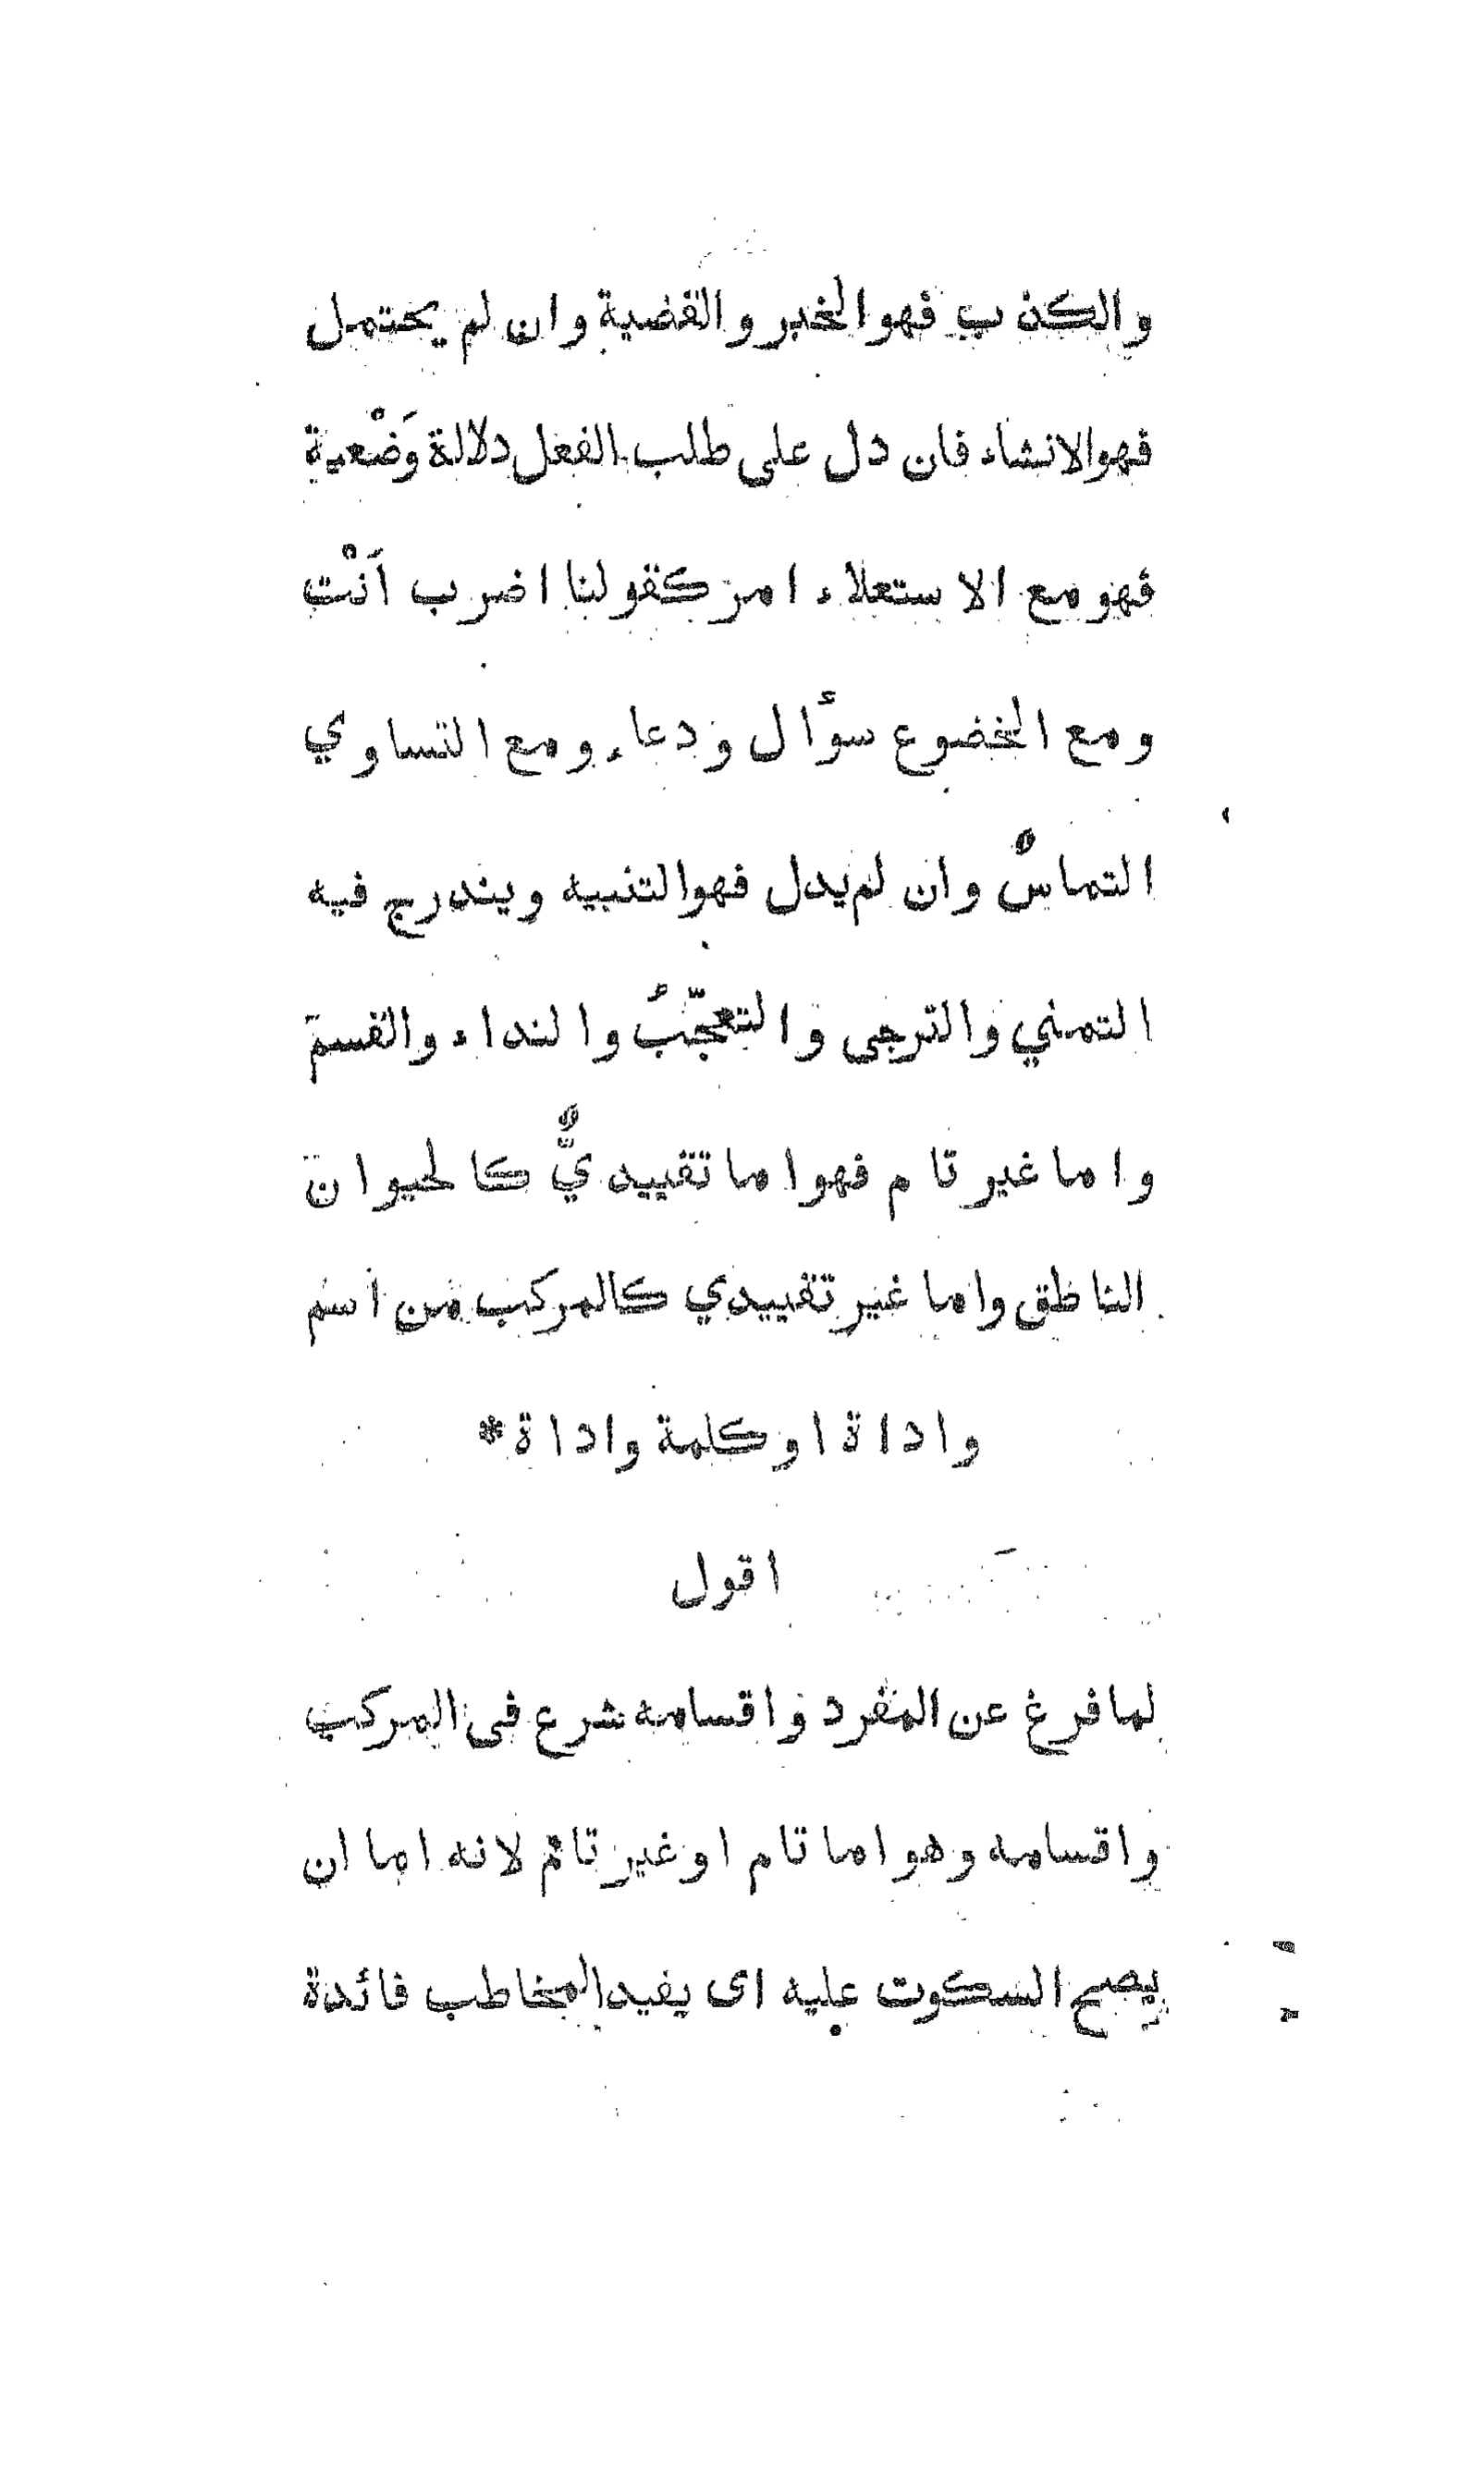 والكذب فهو الخبر والقضية وان لم يحتمل
فهو الانشاء فان دل على طلب الفعل دلالة وَضْعية
فهو مع الاستعلاء امر كقولنا اضرب اَنْت
ومع الخضوع سوأال ودعاء ومع التساوي
التماسٌ وان لم يدل فهو التنبيه ويندرج فيه
التمني والترجى والتعجّبُ والنداء والقسم
واما غير تام فهو اما تقييديٌّ كالحيوان
الناطق واما غير تقييدي كالمركب من اسم
واداة اوكلمة واداة *
اقول
لما فرغ عن المفرد واقسامه شرع فى المركب
واقسامه وهو اما تام اوغير تام لانه اما ان
يصح السكوت عليه اى يفيد المخاطب فائدة